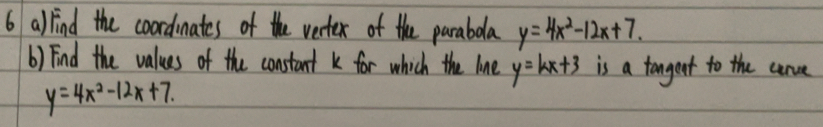 6 a) Find the coordinates of the vertex of the parabola y = 4x²-12x+7.
b) Find the values of the constant k for which the line y = kx+3 is a tangent to the curve
y = 4x²-12x+7.